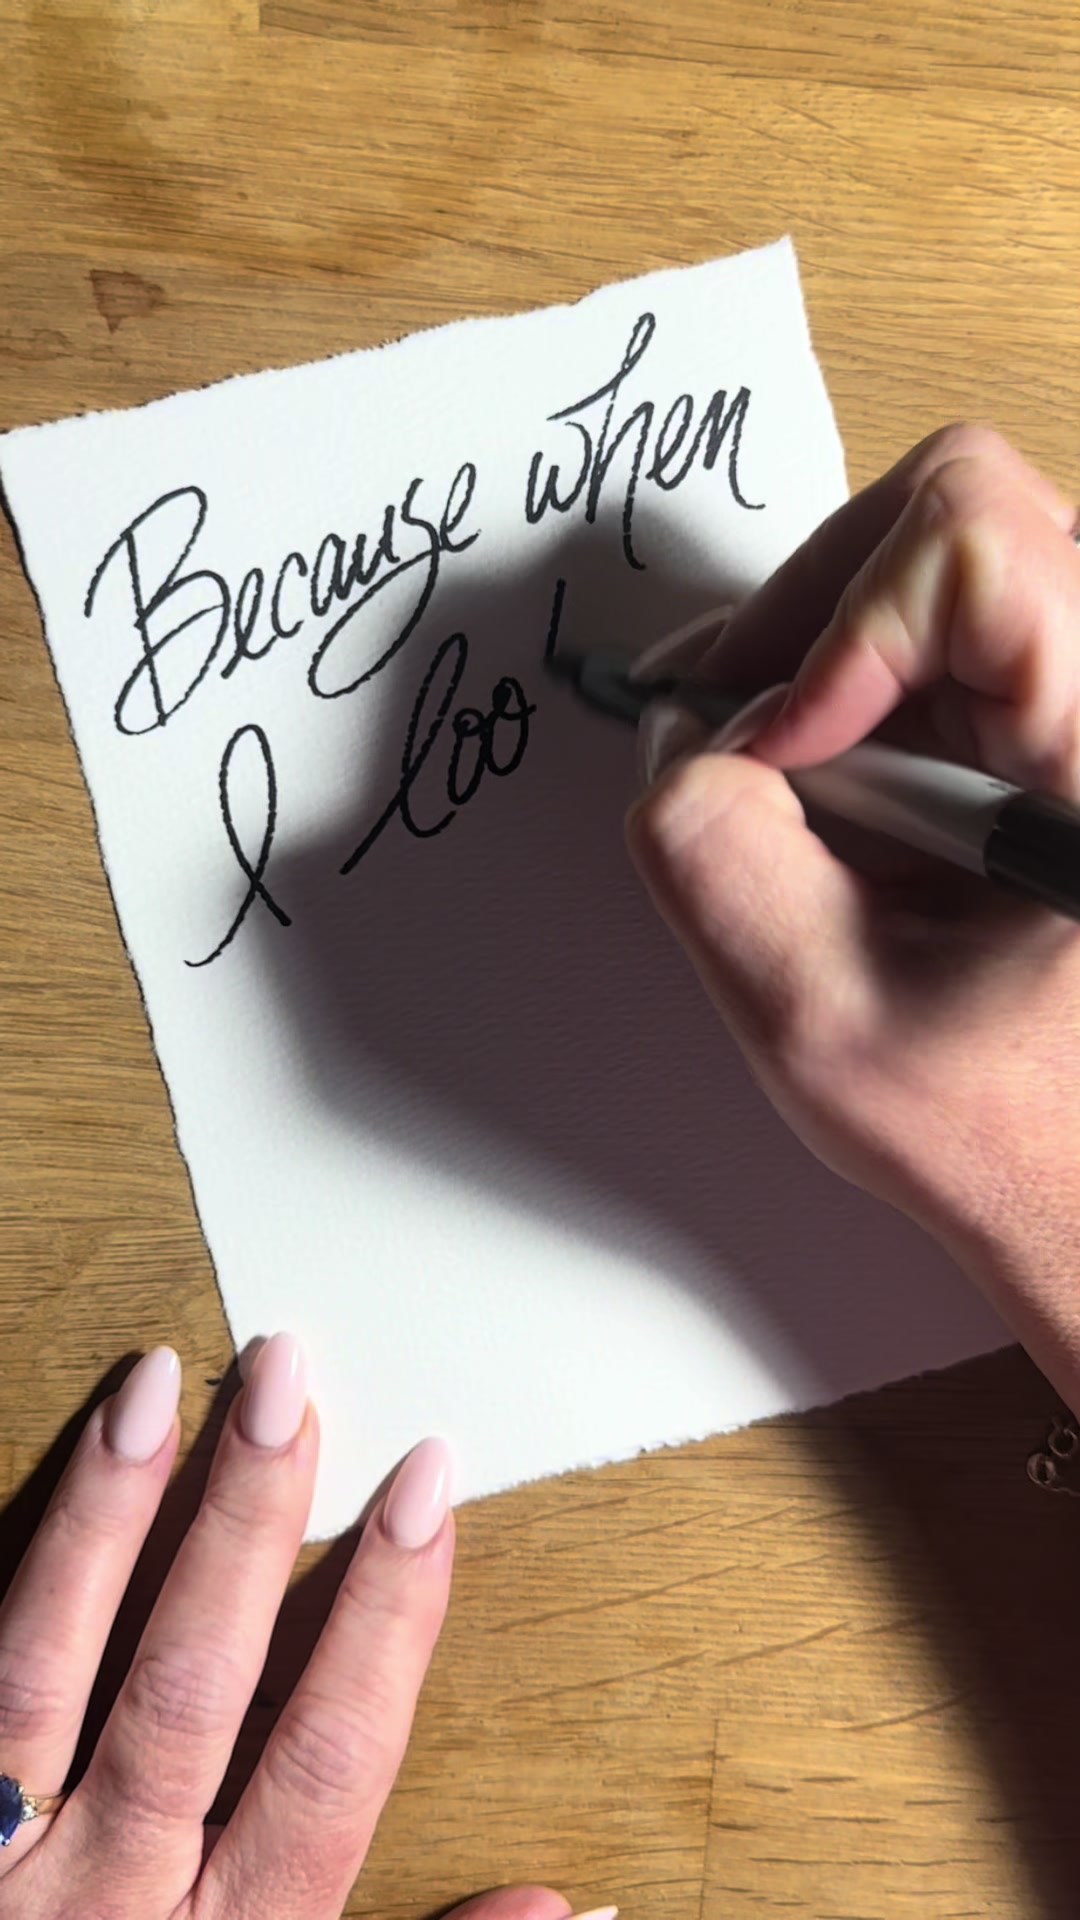 Because when
I loo